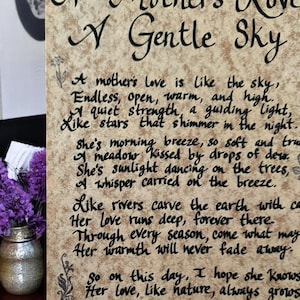 A Mother's Love
A Gentle Sky
A mother's love is like the sky,
Endless, open, warm, and high.
A quiet strength, a guiding light,
Like stars that shimmer in the night.
She's morning breeze, so soft and true
A meadow kissed by drops of dew.
She's sunlight dancing on the trees,
A whisper carried on the breeze.
Like rivers carve the earth with ca
Her love runs deep, forever there.
Through every season, come what may
Her warmth will never fade away.
So on this day, I hope she knows
Her love, like nature, always grows